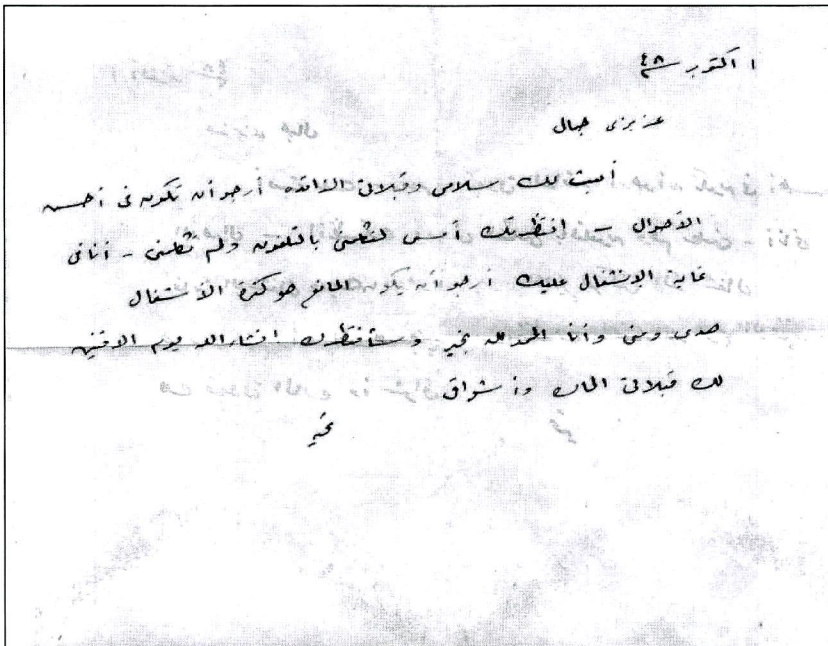 ١ اكتوبر ٤٨
عزيزى جمال
أبعث لك سلامى وقبلاتى الزائده أرجو أن تكون فى أحسن
الأحوال - انتظرتك أمس لتكلمنى بالتلفون ولم تكلمنى - أنا فى
غاية الإنشغال عليك أرجو أن يكون المانع هو كثرة الأشغال
هدى ومنى وأنا الحمد لله بخير وسأنتظرك انشاء الله يوم الاثنين
لك قبلاتى الحاره وأشواقى